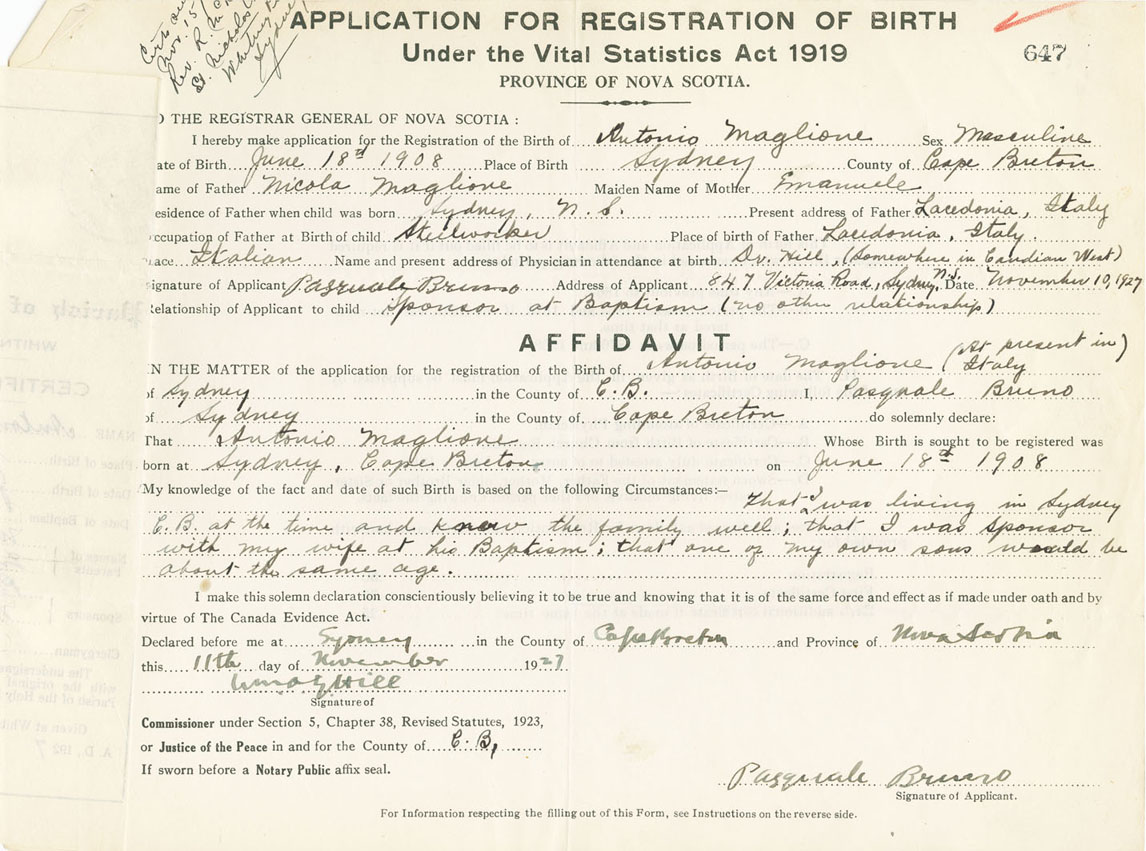 Nov. 15
Rev. R. Mc
St. Nicholas
Whitney
Sydney
APPLICATION FOR REGISTRATION OF BIRTH
Under the Vital Statistics Act 1919
647
PROVINCE OF NOVA SCOTIA.
O THE REGISTRAR GENERAL OF NOVA SCOTIA :
I hereby make application for the Registration of the Birth of Antonio Maglione Sex Masculine
ate of Birth June 18th 1908 Place of Birth Sydney County of Cape Breton
ame of Father Nicola Maglione Maiden Name of Mother Emanuele
esidence of Father when child was born Sydney, N.S. Present address of Father Lacedonia, Italy
ccupation of Father at Birth of child Steelworker Place of birth of Father Lacedonia, Italy.
ace Italian Name and present address of Physician in attendance at birth Dr. Hill, (Somewhere in Candian West)
signature of Applicant Pasquale Bruno Address of Applicant 847 Victoria Road, Sydney, N.S. Date November 10, 1927
Relationship of Applicant to child Sponsor at Baptism (no other relationship)
AFFIDAVIT
IN THE MATTER of the application for the registration of the Birth of Antonio Maglione (At present in Italy)
of Sydney in the County of C.B. I, Pasquale Bruno
of Sydney in the County of Cape Breton do solemnly declare:
That Antonio Maglione Whose Birth is sought to be registered was
born at Sydney, Cape Breton on June 18th 1908
My knowledge of the fact and date of such Birth is based on the following Circumstances:— That I was living in Sydney
C.B. at the time and know the family well; that I was sponsor
with my wife at his Baptism; that one of my own sons would be
about the same age.
I make this solemn declaration conscientiously believing it to be true and knowing that it is of the same force and effect as if made under oath and by
virtue of The Canada Evidence Act.
Declared before me at Sydney in the County of Cape Breton and Province of Nova Scotia
this 11th day of November 1927
Hill
Signature of
Commissioner under Section 5, Chapter 38, Revised Statutes, 1923,
or Justice of the Peace in and for the County of C.B,
If sworn before a Notary Public affix seal.
Pasquale Bruno
Signature of Applicant.
For Information respecting the filling out of this Form, see Instructions on the reverse side.